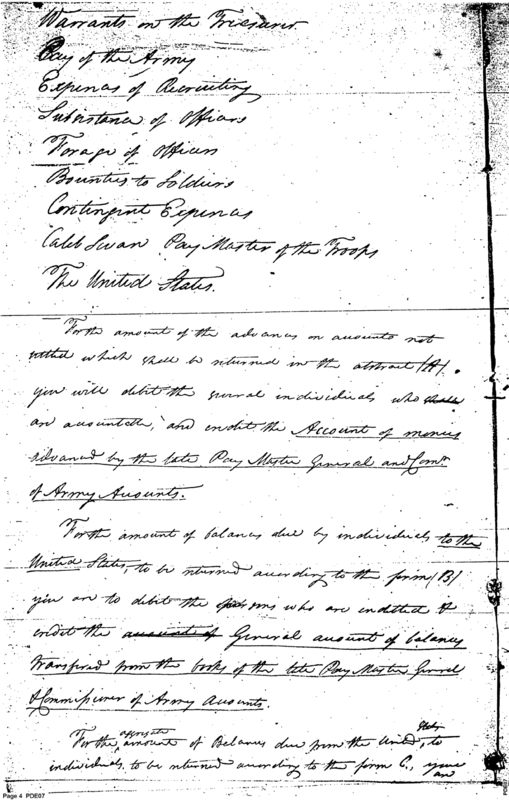 Warrants on the Treasurer.
Pay of the Army
Expenses of Recruiting
Subsistance of Officers
Forage of Officers
Bounties to Soldiers
Contingent Expences
Caleb Swan Pay Master of the Troops
The United States.
For the amount of the advances on accounts not
settled which shall be returned in the abstract (A).
you will debit the several individuals who shall
are accountable, and credit the Account of monies
advanced by the late Pay Master General and Comr.
of Army Accounts.
For the amount of balances due by individuals to the
United States, to be returned according to the form (B)
you are to debit the persons who are indebted &
credit the account of General account of balances
transfered from the books of the late Pay Master General
& Commissioner of Army Accounts.
For the aggregate amount of Balances due from the United States, to
individuals, to be returned according to the form C, you
are
Page 4 PDE07